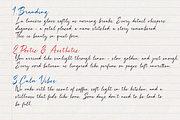 1. Branding
In luminous glows softly as morning breaks. Every detail whispers
elegance - a petal placed, a name stitched, a story remembered.
This is beauty in quiet form.
2. Poetic & Aesthetic
You arrived like sunlight through linen - slow, golden, and just enough.
Every word between us lingered like perfume on pages left unwritten.
3. Calm Vibes
We woke with the scent of coffee, soft light on the kitchen, and a
stillness that felt like home. Some days don't need to be loud to
be full.